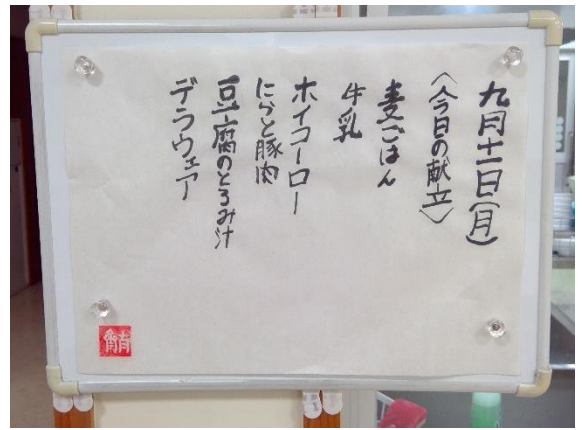 九月十一日(月)
〈今日の献立〉
麦ごはん
牛乳
ホイコーロー
にらと豚肉
豆腐のとろみ汁
デラウェアー